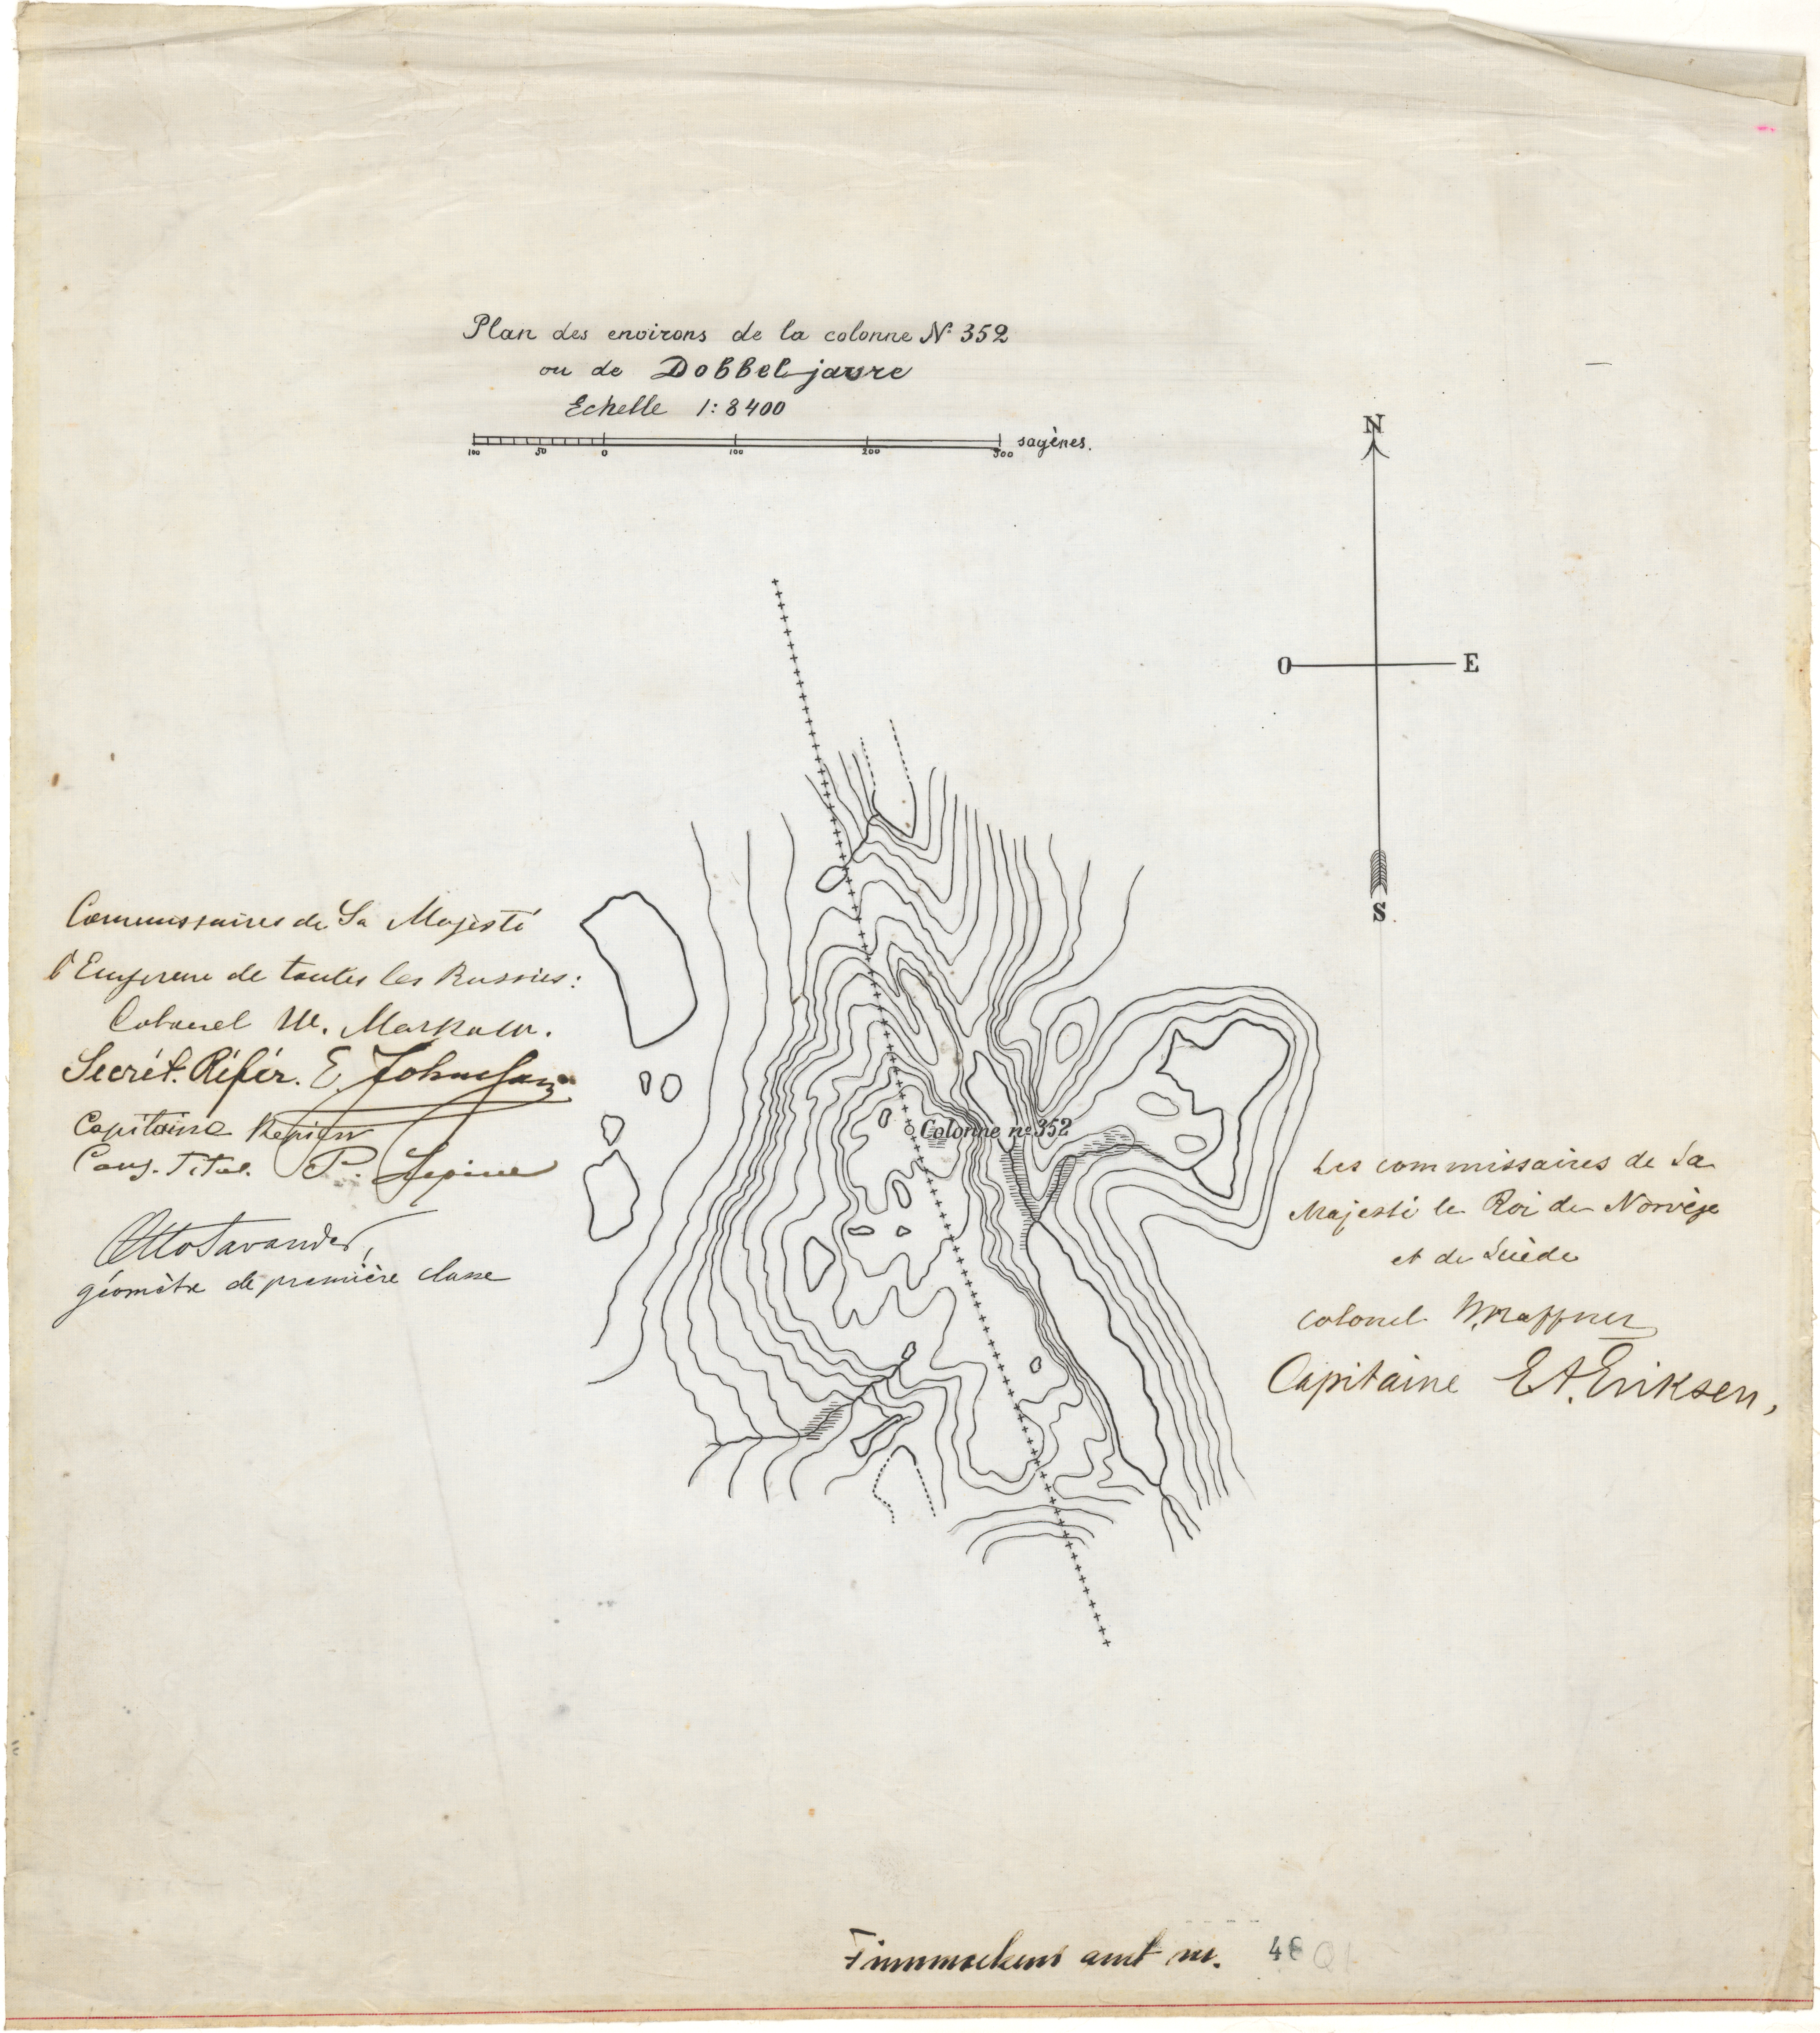 Plan des environs de la colonne № 352
ou de Dobbeljavre
Echelle 1:8400
100 50 0 100 200 300 sagènes.
N
O E
S.
Commissaires de Sa Majesté
l'Empereur de toutes les Russies:
Colonel W.
Secrét. Référ. E. Johnsson
Capitaine
Cons. Titul. P. Lepine
Otto Savander,
géomètre de première classe
Colonne nº 352
Les commissaires de Sa
Majesté le Roi de Norvège
et de Suède
colonel W. Haffner
Capitaine E A. Eriksen,
Finmarkens amt nr. 48